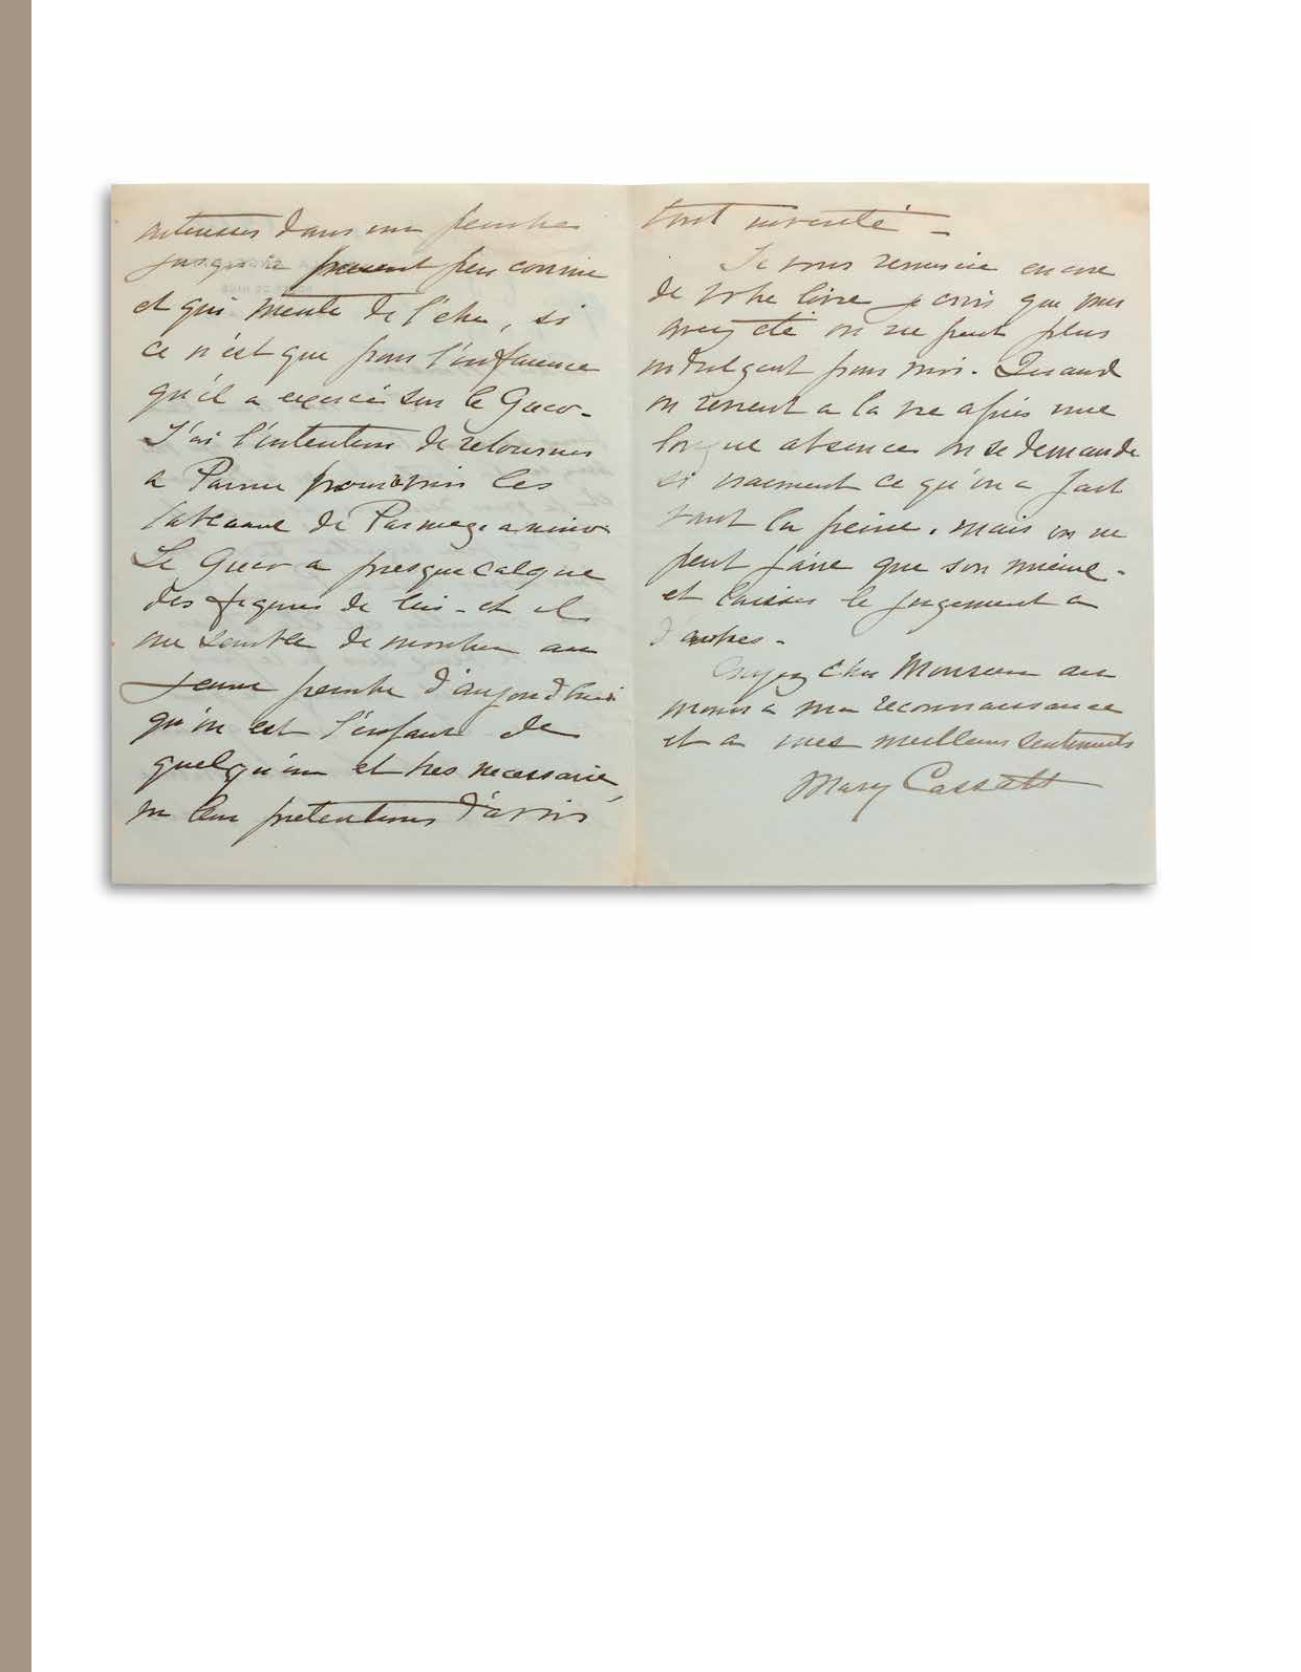 interesser dans un peintre
jusqu'ici present peu connu
et qui merite de l'etre, si
ce n'est que pour l'influence
qu'il a exercée sur le Greco -
J'ai l'intention de retourner
a Parme pour voir les
tableaux de Parmegianino
Le Greco a presque calque
des figures de lui - et il
me semble de montrer au
jeune peintre d'aujourd'hui
qu'on est l'enfant de
quelqu'un et tres necessaire,
vu leur pretentions d'avoir
tout inventé -
Je vous remercie encore
de votre livre je crois que vous
avez été on ne peut plus
indulgent pour moi. Quand
on revient a la vie après une
longue absence on se demande
si vraiment ce qu'on a fait
vaut la peine. mais on ne
peut faire que son mieux -
et laisser le jugement a
d'autres -
Croyez cher Monsieur au
moins a ma reconnaissance
et a mes meilleurs sentiments
Mary Cassatt